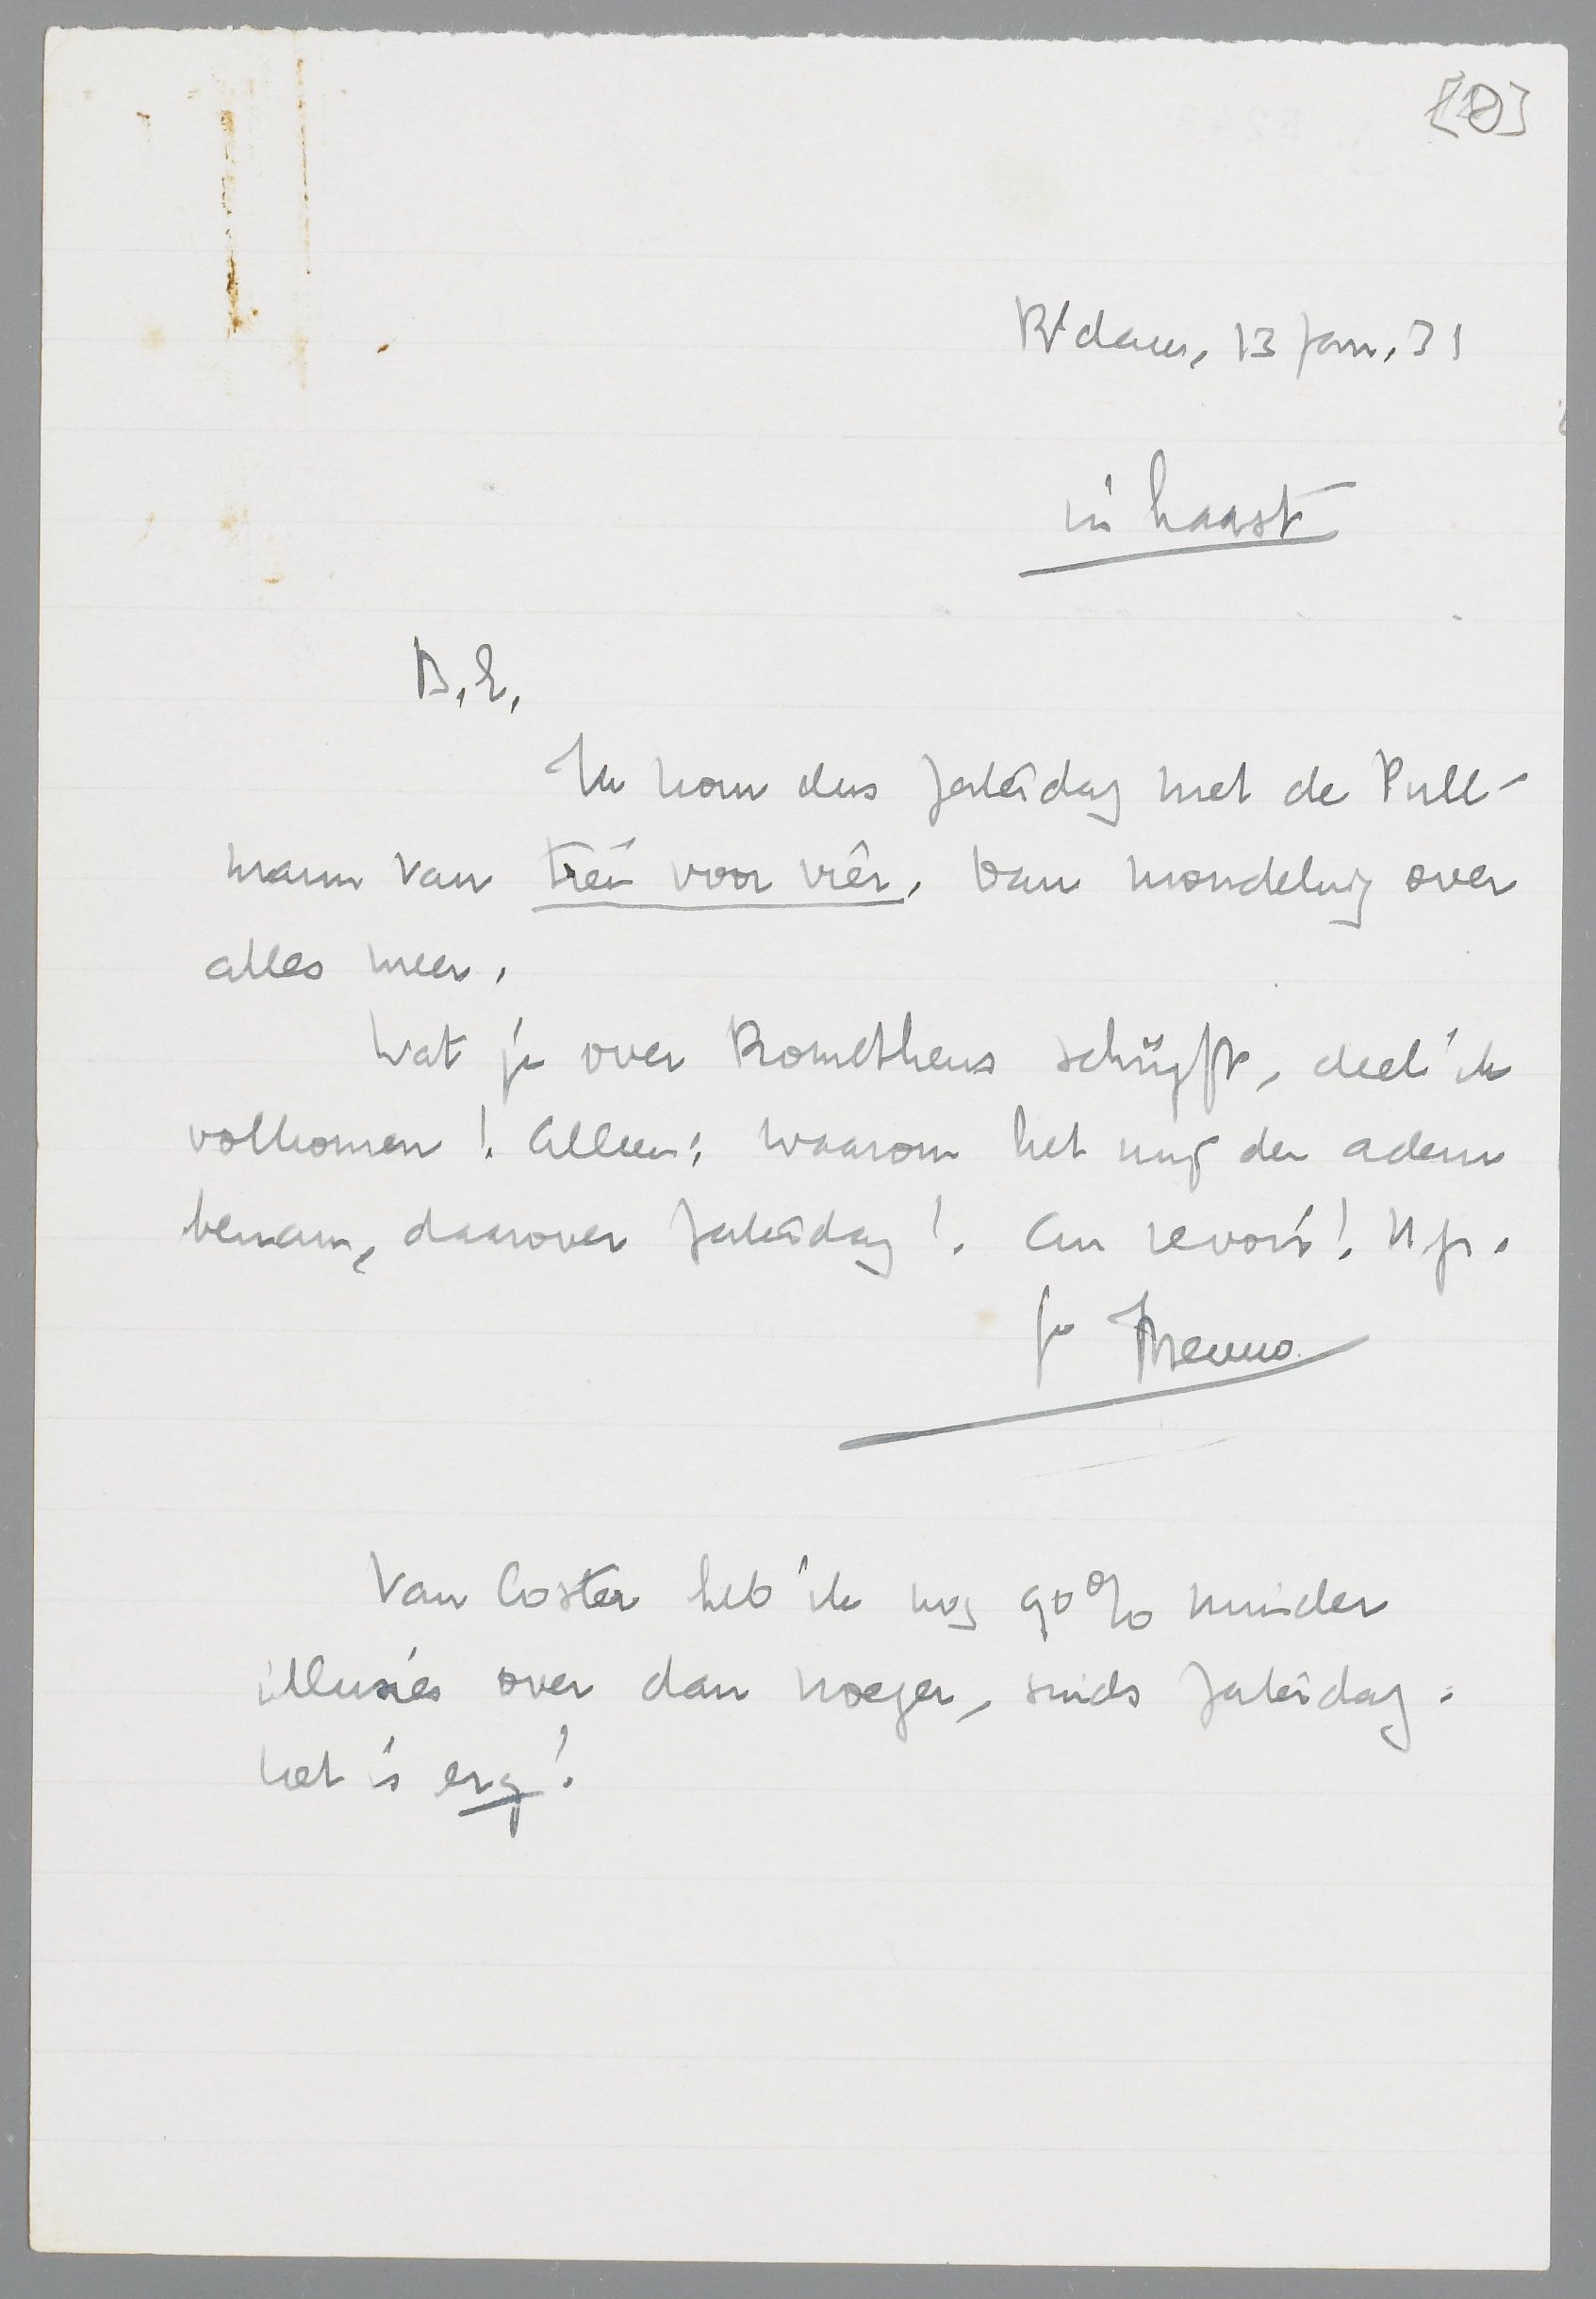 R'dam, 13 Jan. 31
in haast
B.E.,
Ik kom dus Zaterdag met de Pull-
mann van tien voor vier. Dan mondeling over
alles meer.
Wat je over Prometheus schrijft, deel ik
volkomen! Alleen: waarom het mij den adem
benam, daarover Zaterdag! Au revoir! H.gr.
je Menno
Van Coster heb ik nog 90% minder
illusies over dan vroeger, sinds Zaterdag.
Het is erg!